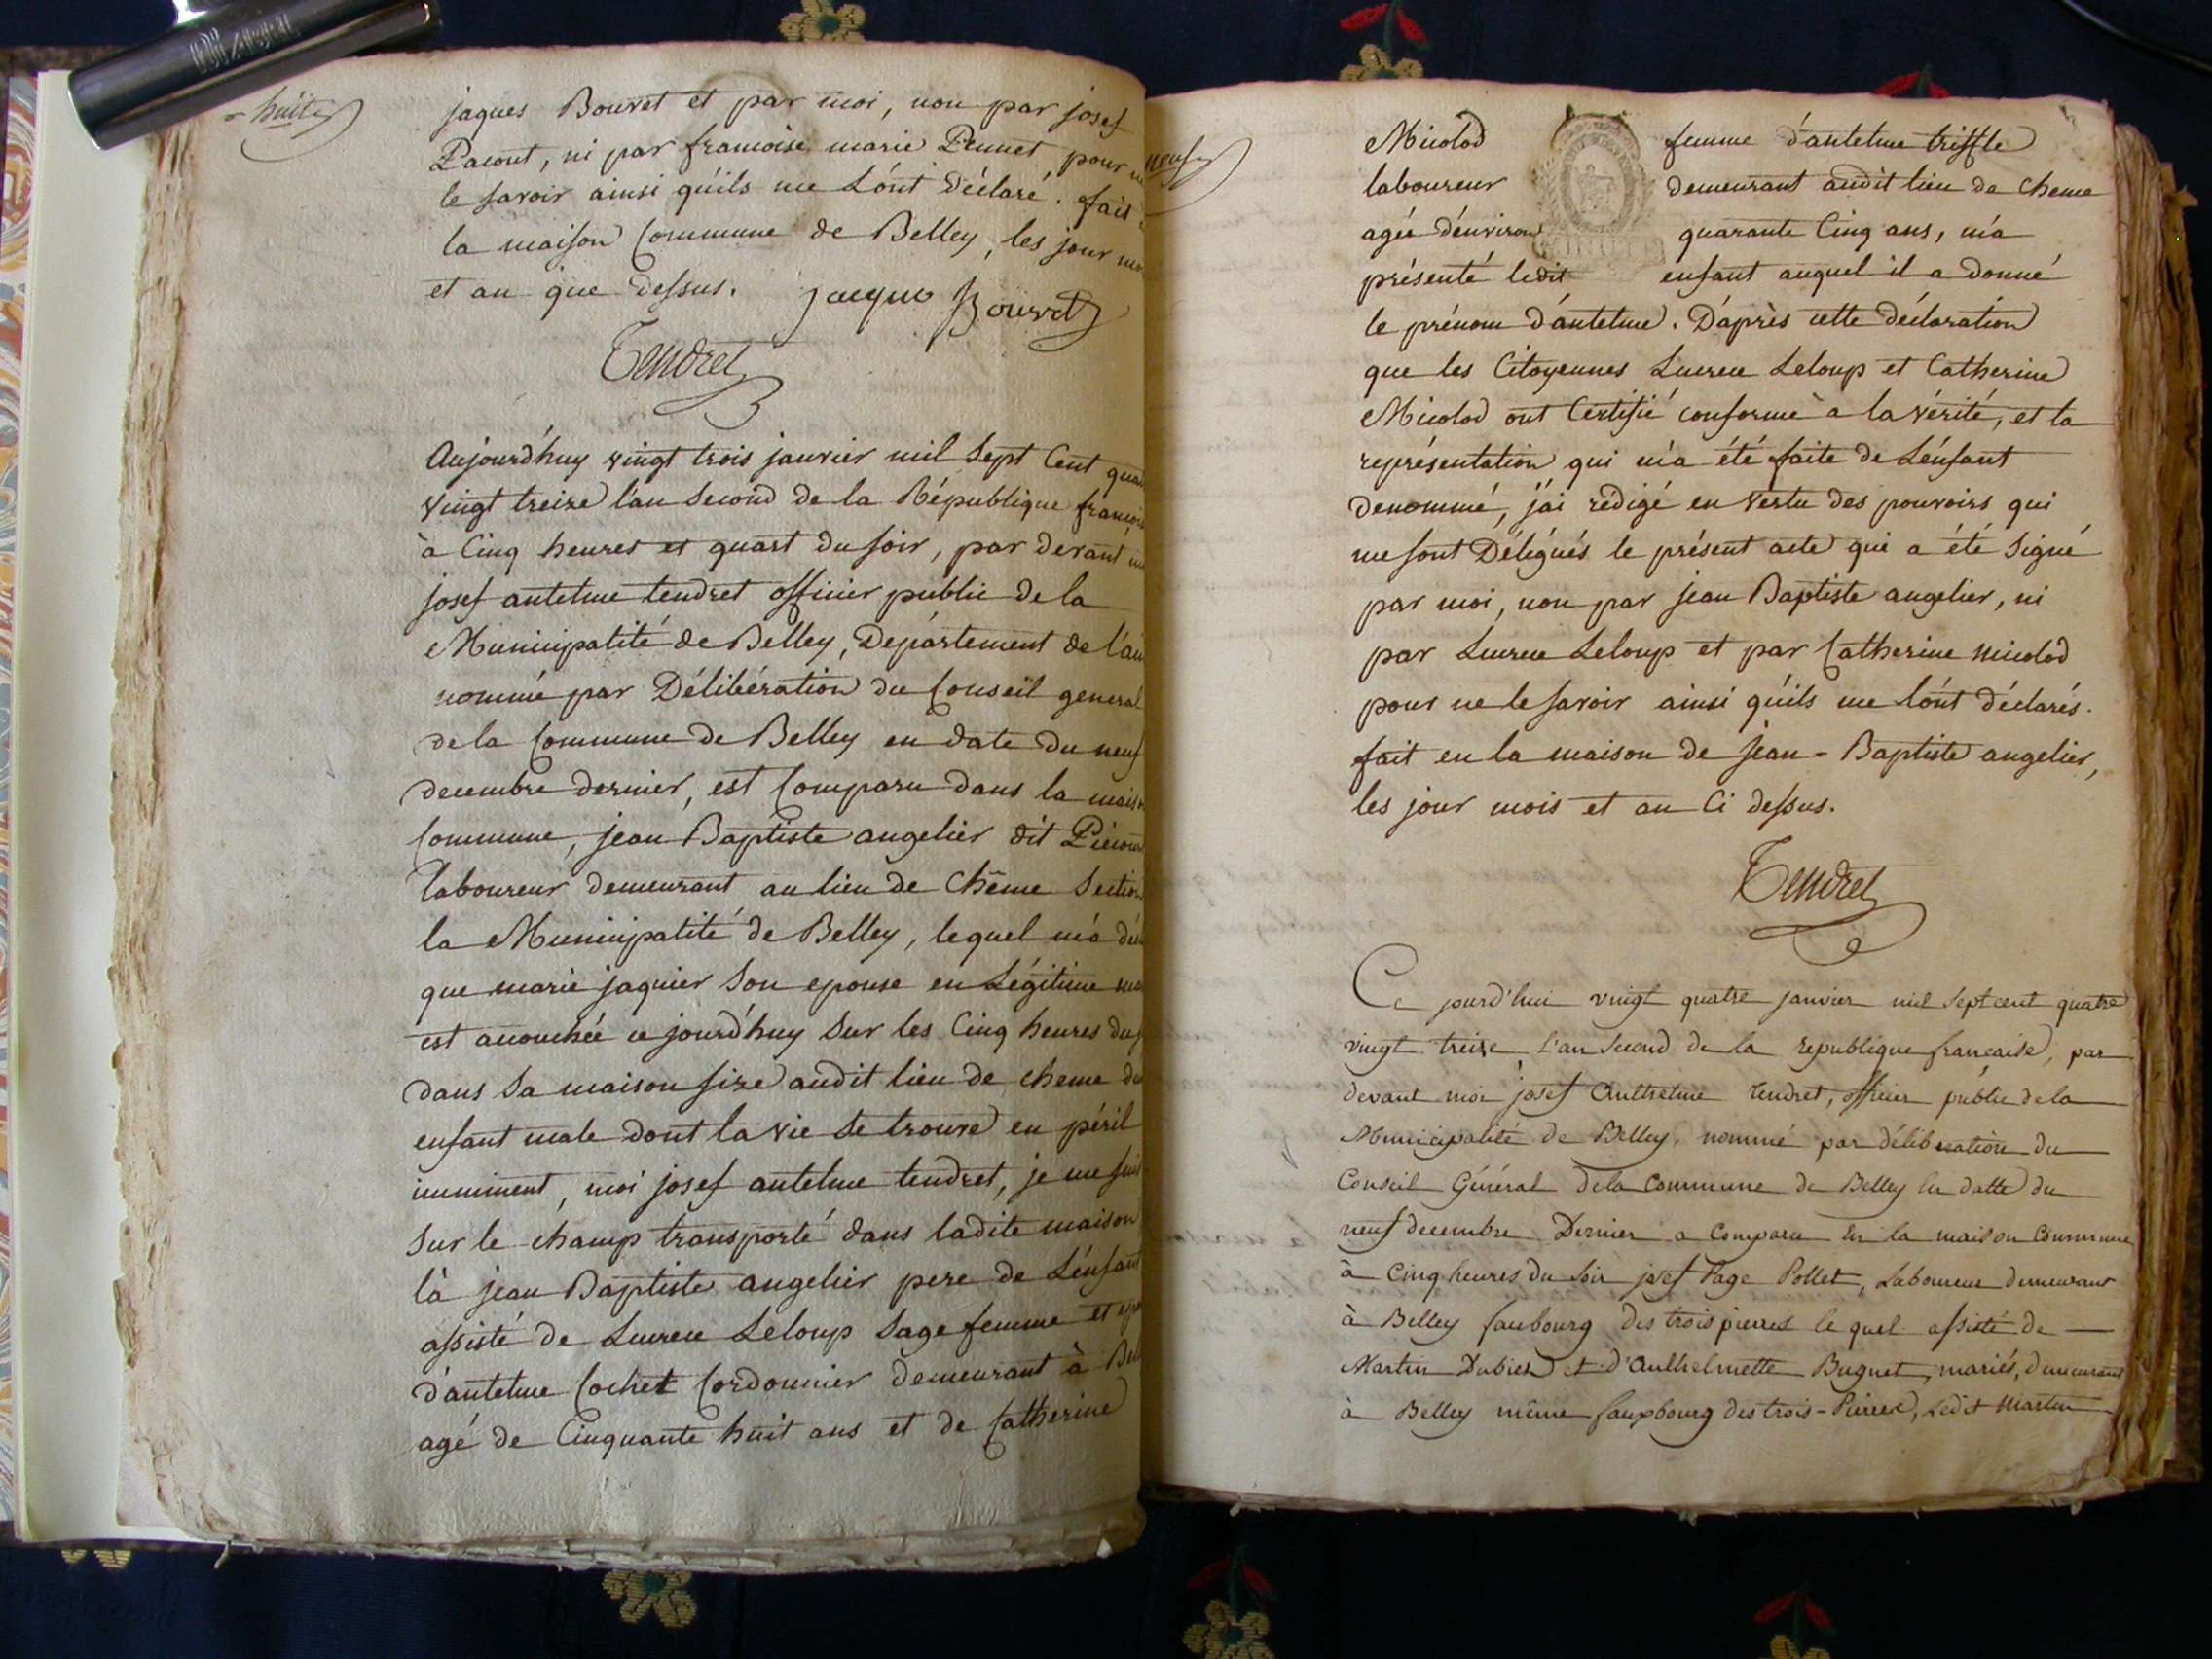 huit
jaques Bouvet et par moi, non par josef
Pacout, ni par francoise marie Pennet pour
le savoir ainsi qu'ils me L'ont Déclaré. fait
la maison Commune de Belley, les jour
et an que dessus. jacque Bouvet
Tendret
Aujourd'huy vingt trois janvier mil Sept Cent
vingt treize l'an Second de la République
à Cinq heures et quart du soir, par devant
josef antelme tendret officier public de la
Municipalité de Belley, Département de
nommé par Délibération du Conseil general
de la Commune de Belley en date du neuf
decembre dernier, est Comparu dans la
Commune, jean Baptiste angelier dit
laboureur demeurant au lieu de Chême
la Municipalité de Belley, lequel m'a
que marie jaquier Son epouse en Légitime
est accouchée ce jourd'huy Sur les Cinq heures
dans Sa maison size audit lieu de cheme
enfant male dont la vie Se trouve en péril
imminent, moi josef antelme tendret, je me
Sur le champ transporté dans ladite maison
là jean Baptiste angelier pere de L'enfant
assisté de Lucrece Leloup Sage femme et
d'antelme Cochet Cordonnier demeurant à
agé de Cinquante huit ans et de Catherine
neuf
Micolod femme d'antelme triffle
laboureur demeurant audit lieu de cheme
agée d'environ quarante Cinq ans, m'a
présenté ledit enfant auquel il a donné
le prénom d'antelme. D'après cette déclaration
que les Citoyennes Lucrece Leloup et Catherine
Micolod ont Certifié conforme à la vérité, et la
représentation qui m'a été faite de L'enfant
denommé, j'ai rédigé en vertu des pouvoirs qui
me sont Délégués le présent acte qui a été Signé
par moi, non par jean Baptiste angelier, ni
par Lucrece Leloup et par Catherine micolod
pour ne le savoir ainsi qu'ils me l'ont déclarés.
fait en la maison de jean-Baptiste angelier,
les jour mois et an Ci dessus.
Tendret
Ce jourd'hui vingt quatre janvier mil sept cent quatre
vingt treize, l'an Second de la republique francaise, par
devant moi josef Anthelme tendret, officier public de la
Municipalité de Belley, nommé par délibération du
Conseil Général de la Commune de Belley en datte du
neuf decembre Dernier a Comparu En la maison Commune
à Cinq heures du Soir josef Page Pollet, Laboureur demeurant
à Belley faubourg des trois pierres le quel assisté de
Martin Dubied et d'Anthelmette Buguet, mariés, demeurant
à Belley même fauxbourg des trois-Pierres, Ledit Martin